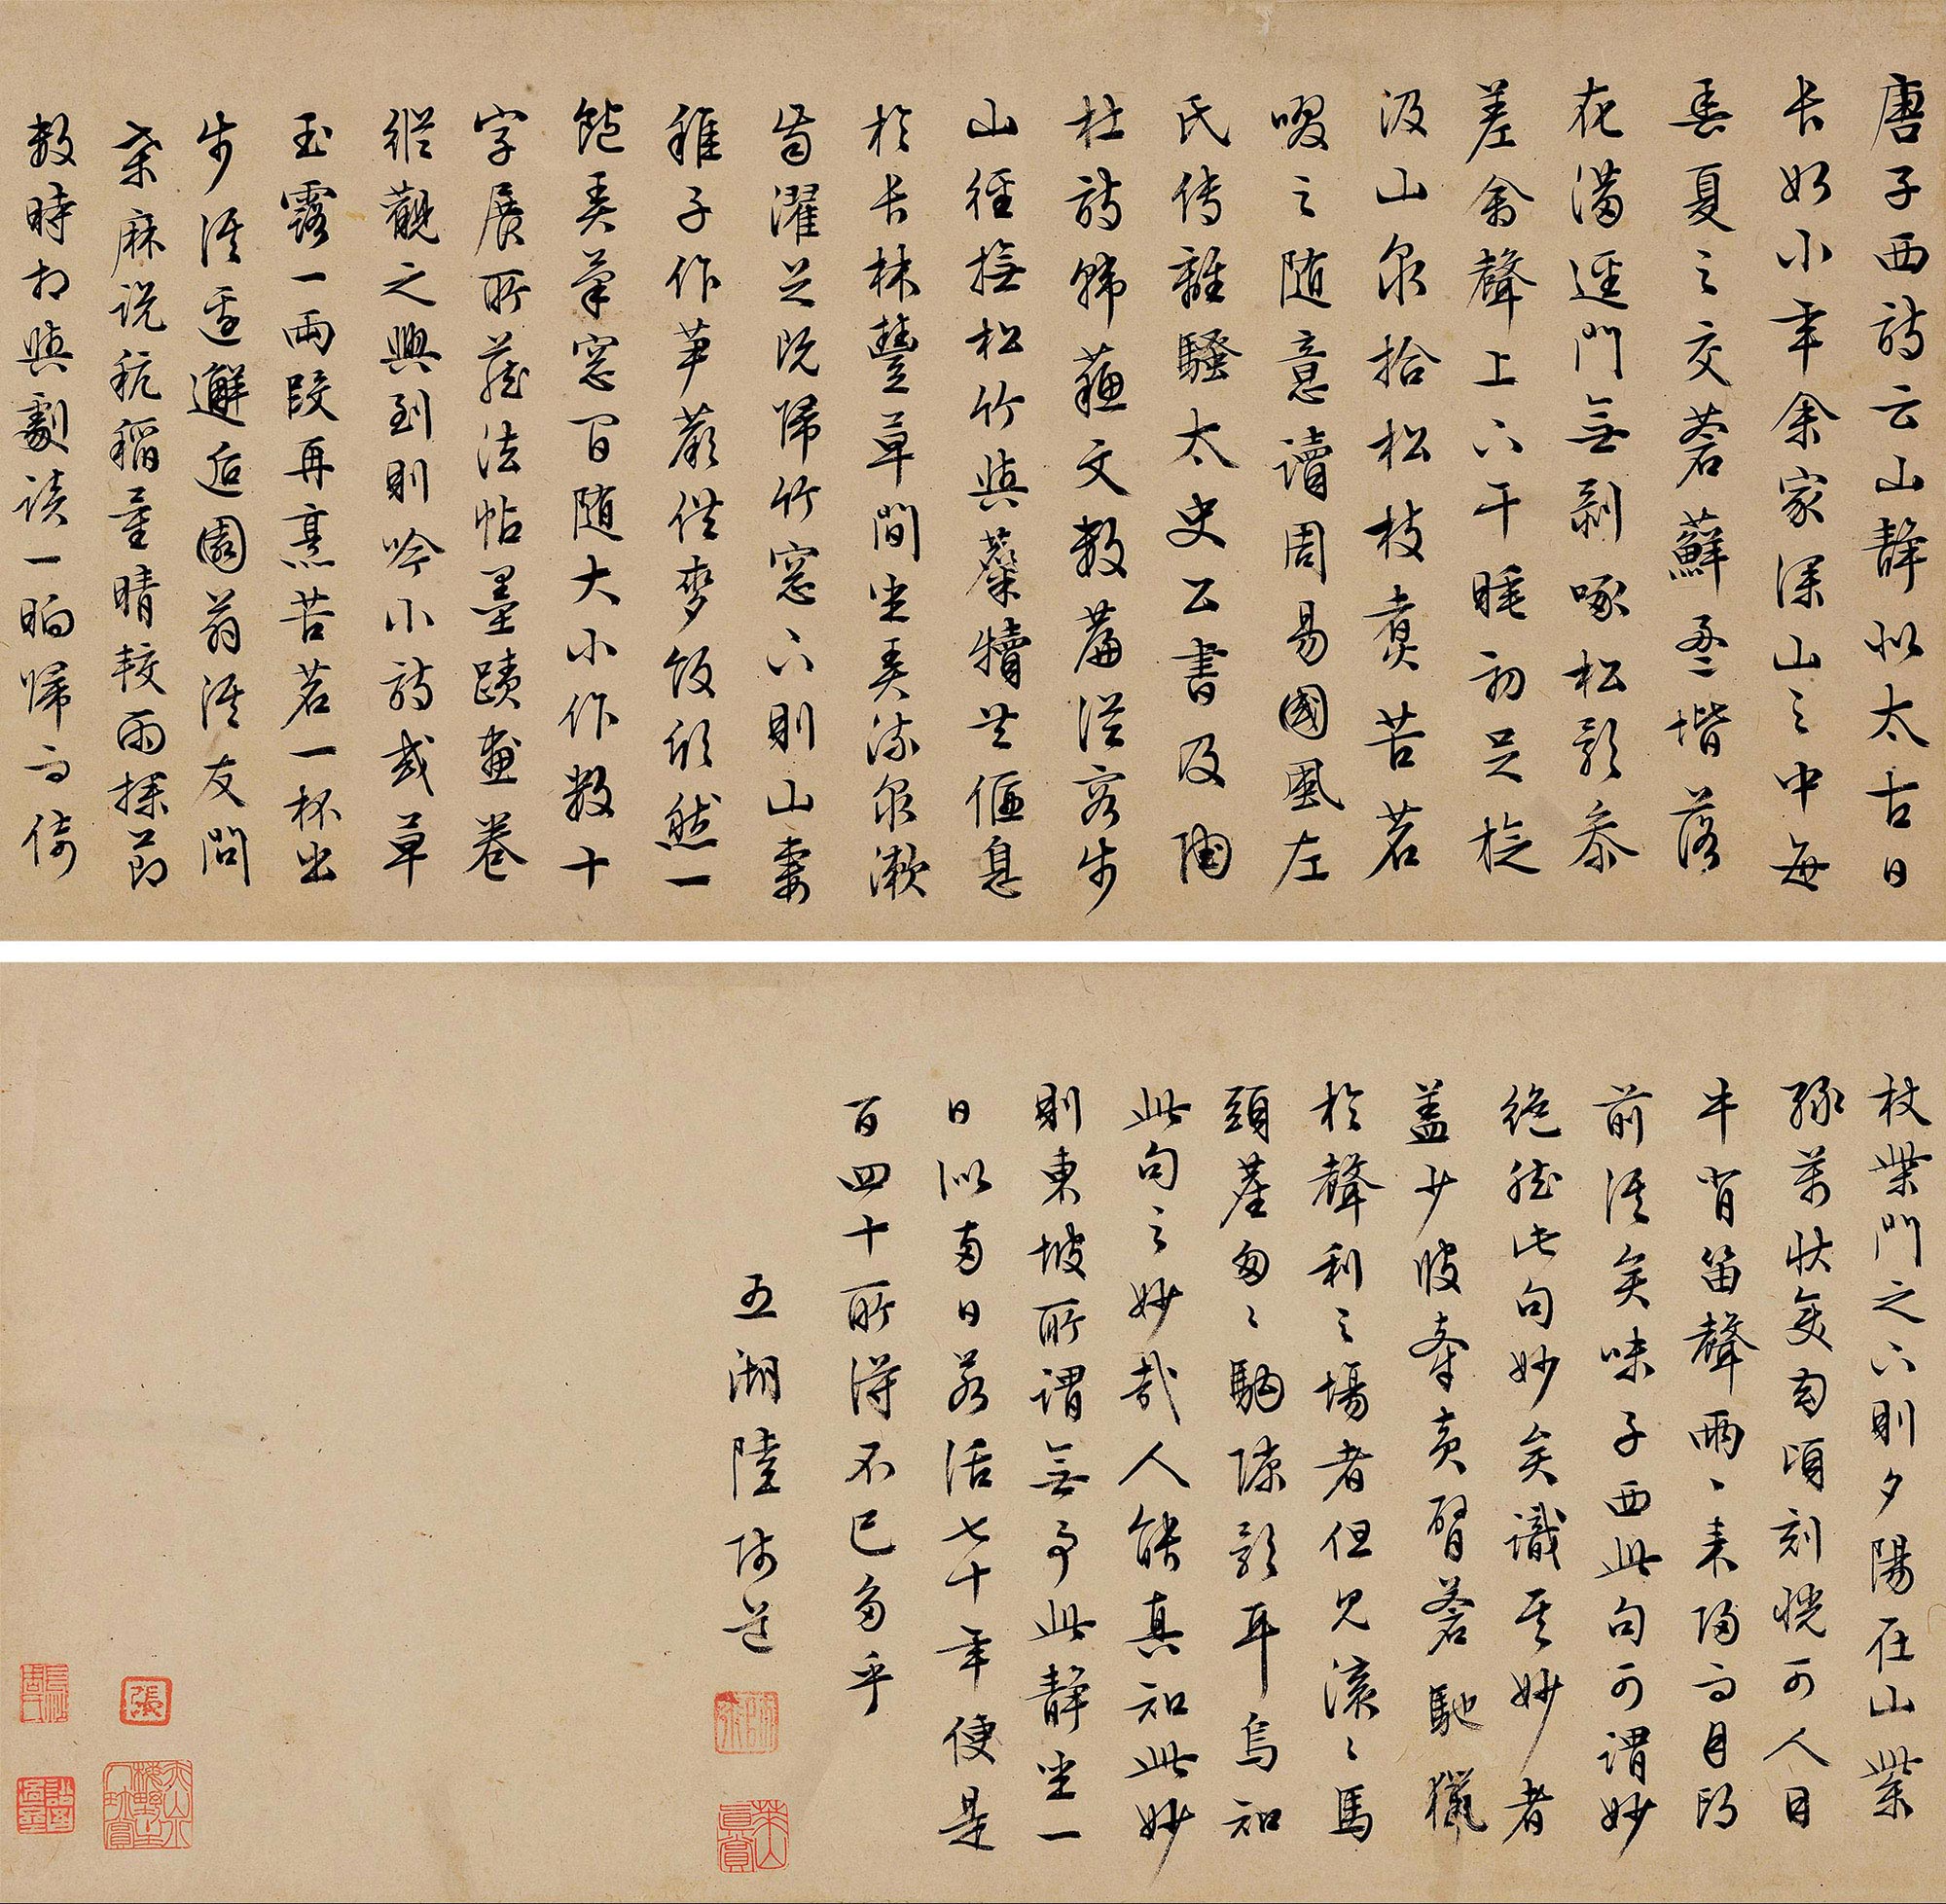 唐子西詩云山靜似太古日
長如小年余家深山之中每
春夏之交蒼蘚盈堦落
花滿逕門無剝啄松影參
差禽聲上下午睡初足旋
汲山泉拾松枝煮苦茗
啜之随意讀周易國風左
氏傳離騷太史公書及陶
杜詩韓蘇文數篇從容步
山徑撫松竹與麋犢共偃息
於長林豐草間坐弄流泉漱
齒濯足既歸竹窓下則山妻
稚子作笋蕨供麥飯欣然一
飽弄筆窓間随大小作數十
字展所藏法帖墨蹟畫卷
縱觀之興到則吟小詩或草
玉露一兩段再烹苦茗一杯出
步溪邊邂逅園翁溪友問
桑麻說秔稻量晴較雨探節
數時相與劇談一晌歸而倚
杖柴門之下則夕陽在山紫
綠萬狀變幻頃刻恍可人目
牛背笛聲兩兩来歸而月印
前溪矣味子西此句可謂妙
絕然此句妙矣識其妙者
蓋少彼牽黄臂蒼馳獵
於聲利之場者但見滾滾馬
頭塵匆匆駒隙影耳烏知
此句之妙哉人能真知此妙
則東坡所謂無事此靜坐一
日似兩日若活七十年便是
百四十所得不已多乎
五湖陸師道
張